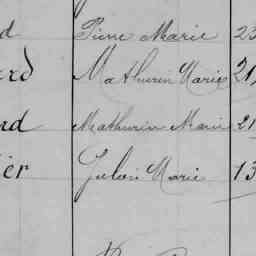 d Pierre Marie 23
erd Mathurin Marie 21
nd Mathurin Marie 21
ier Julien Marie 13